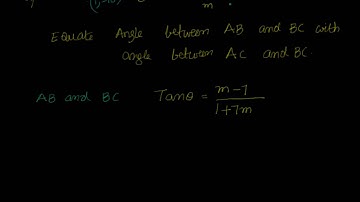 m
Equate Angle between AB and BC with
angle between AC and BC.
AB and BC Tanθ = m-7
1+7m